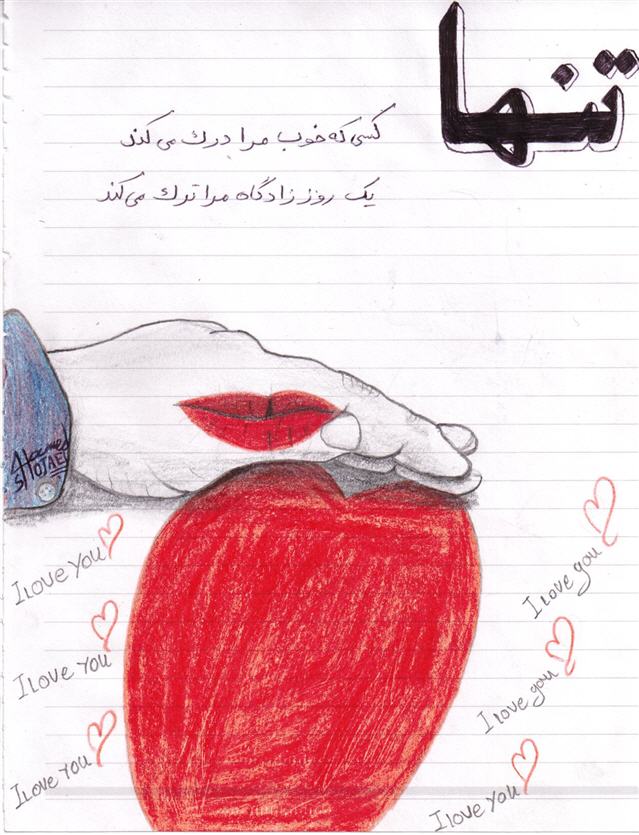 تنها
کسی که خوب مرا درك می کند
یک روز زادگاه مرا ترك می کند
Hamed
SHOJAEI
I love you
I love you
I love you
I love you
I love you
I love you